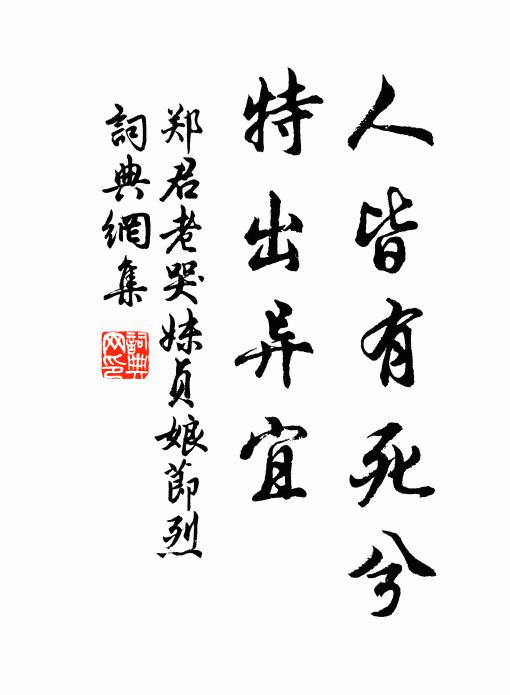 人皆有死兮
特出异宜
郑君老哭妹贞娘节烈
詞典網集
詞典
网印